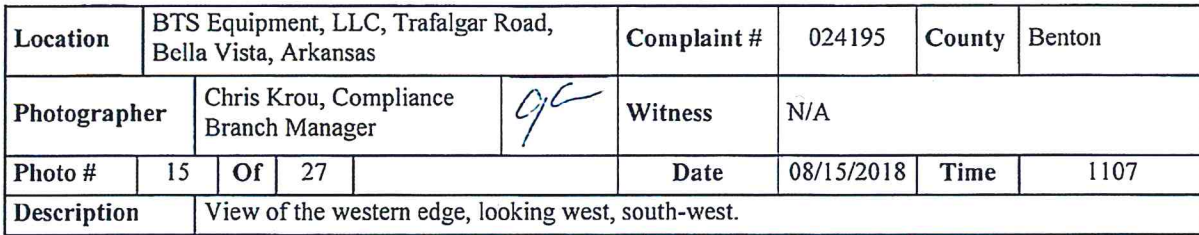 Location BTS Equipment, LLC, Trafalgar Road, Bella Vista, Arkansas Complaint # 024195 County Benton
Photographer Chris Krou, Compliance Branch Manager Witness N/A
Photo # 15 Of 27 Date 08/15/2018 Time 1107
Description View of the western edge, looking west, south-west.